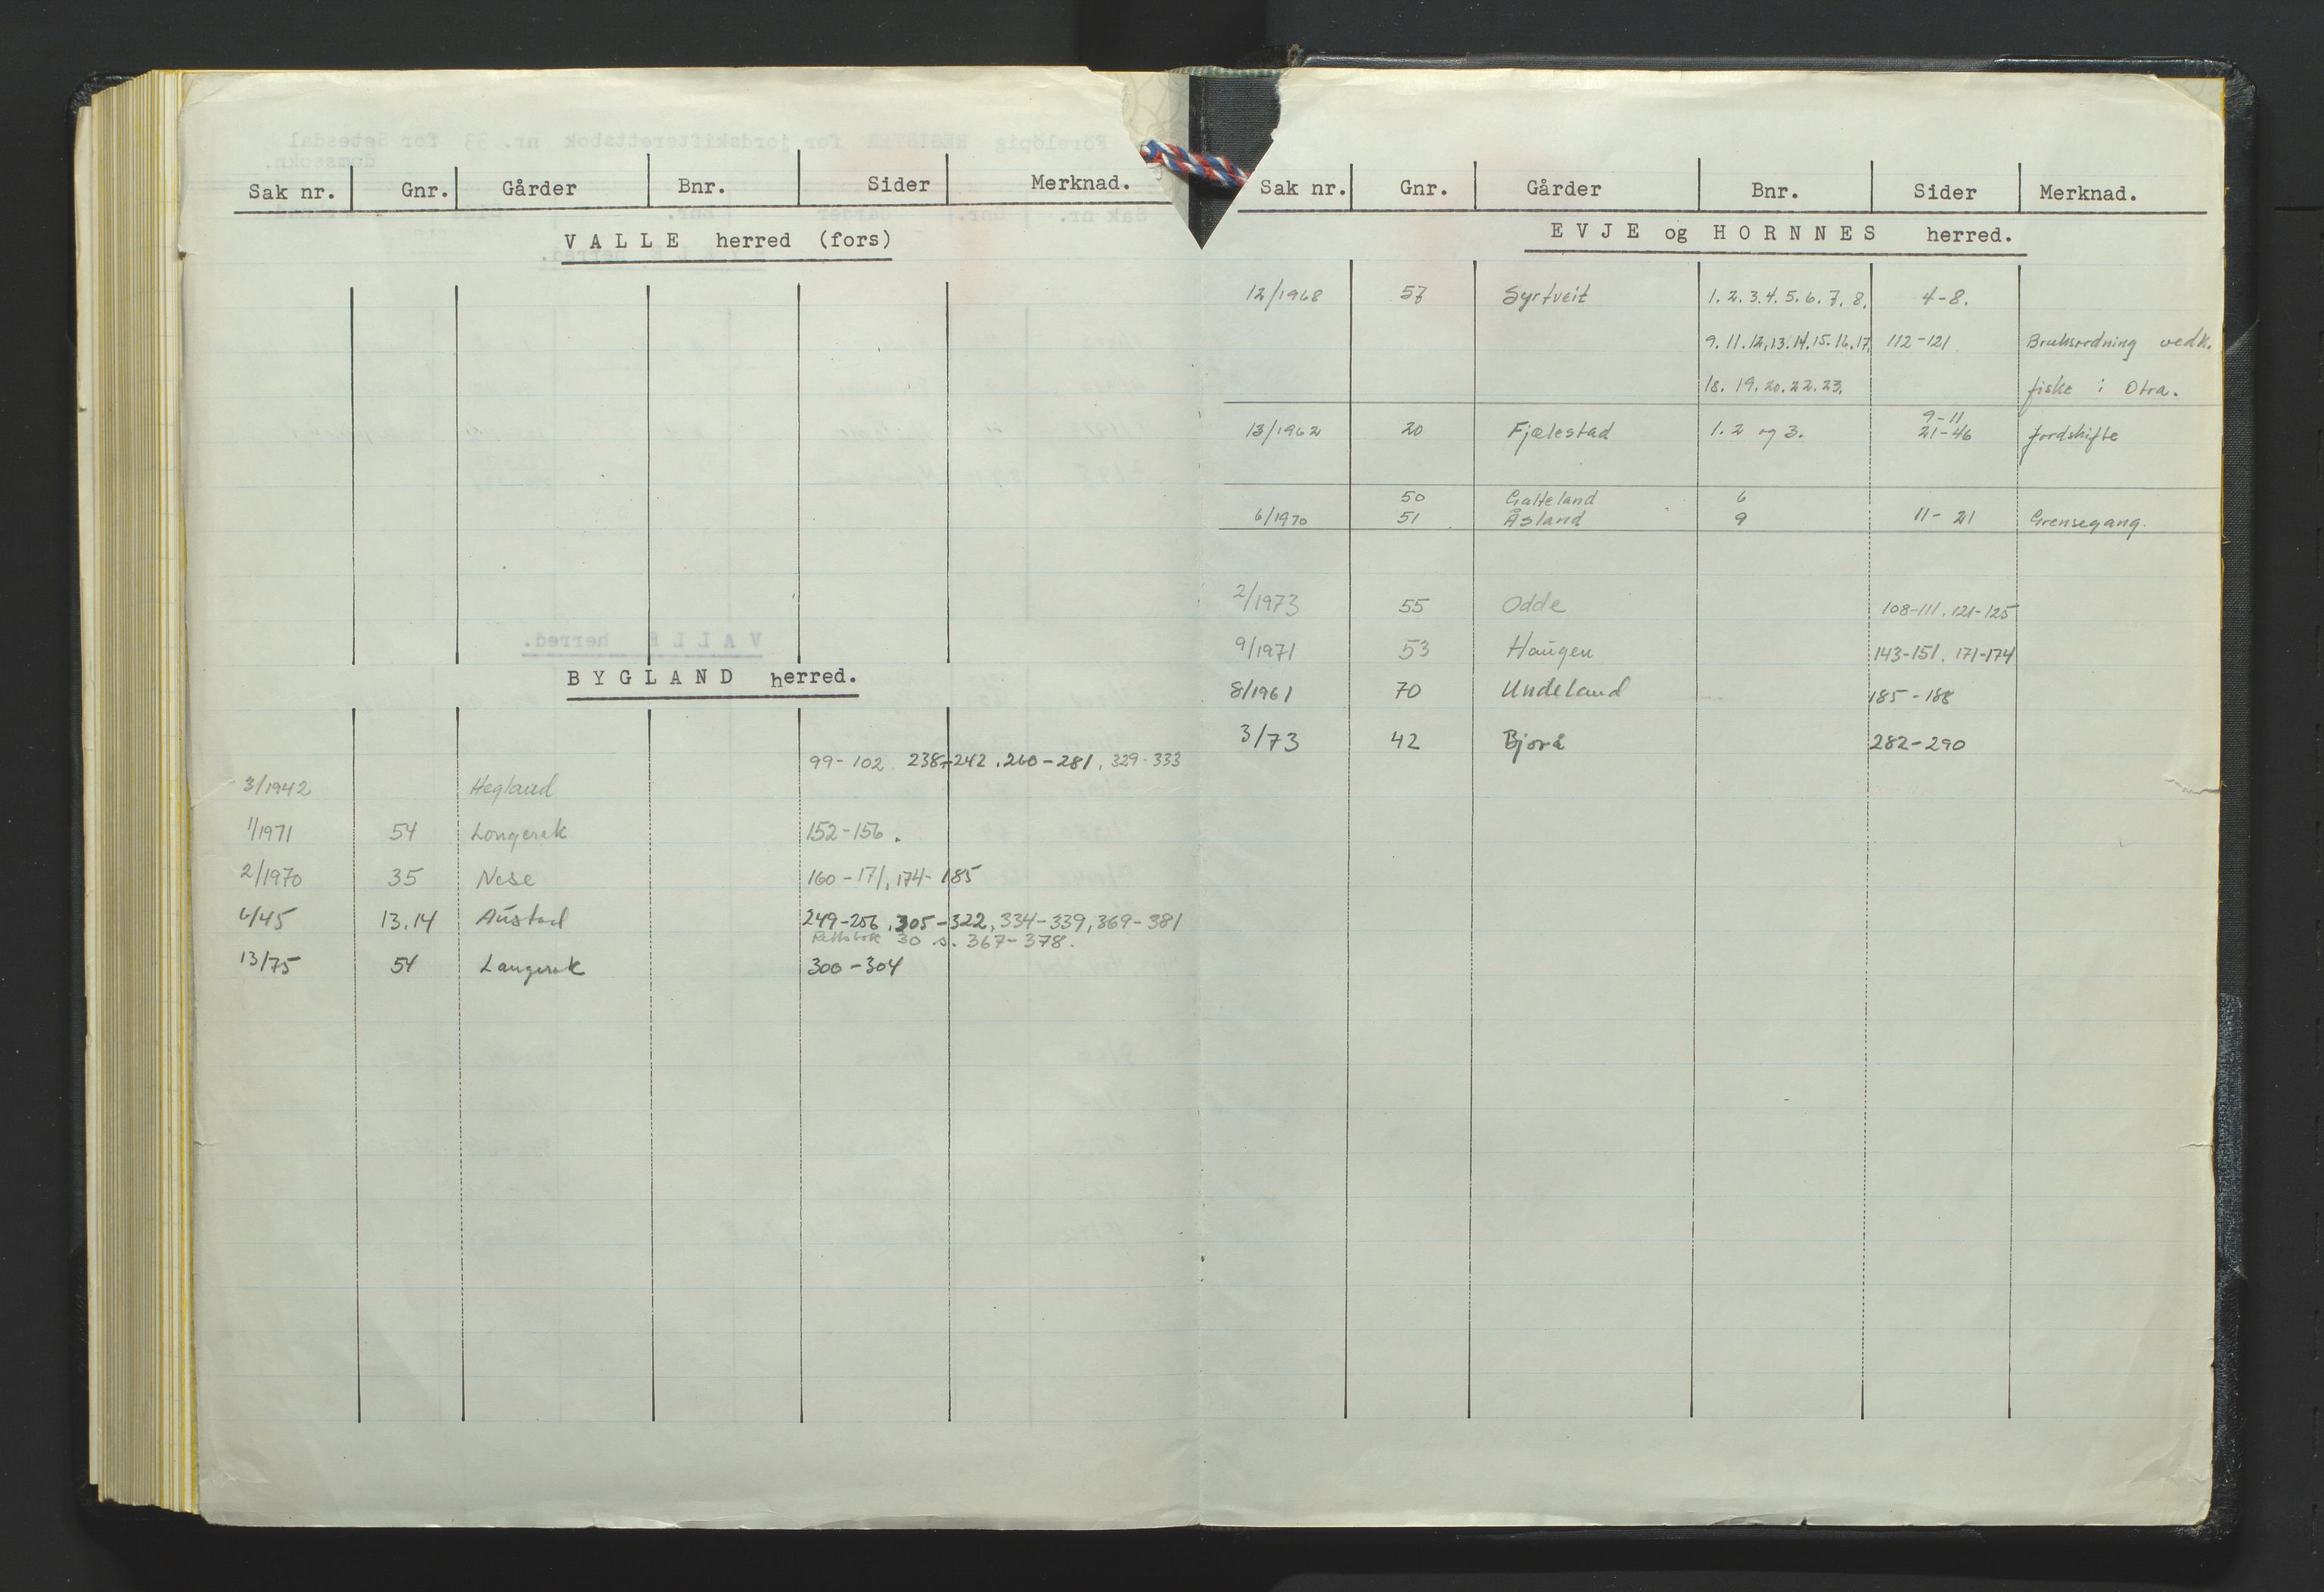 Sak nr. Gnr. Gårder Bnr. Sider Merknad.
VALLE herred (fors)
BYGLAND herred.
99-102. 238-242. 260-281. 329-333
3/1942 Hegland
1/1971 54 Longerak 152-156.
2/1970 35 Nese 160-171, 174-185
6/45 13.14 Austad 249-256, 305-322, 334-339, 369-381
Rettsbok 30 s. 367-378.
13/75 54 Langerak 300-304
Sak nr. Gnr. Gårder Bnr. Sider Merknad.
EVJE og HORNNES herred.
12/1968 57 Syrtveit 1.2.3.4.5.6.7.8. 4-8.
9.11.12.13.14.15.16.17. 112-121 Bruksordning vedk.
18.19.20.22.23. fiske i Otra.
9-11
13/1962 20 Fjælestad 1.2 og 3. 21-46 Jordskifte
50 Galteland 6
6/1970 51 Åsland 9 11-21 Grensegang.
2/1973 55 Odde 108-111. 121-125
9/1971 53 Haugen 143-151. 171-174
8/1961 70 Undeland 185-188
3/73 42 Bjorå 282-290